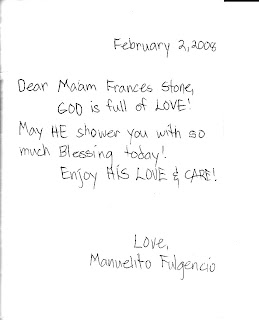 February 2, 2008
Dear Ma'am Frances Stone,
GOD is full of LOVE!
May HE shower you with so
much Blessing today!
Enjoy HIS LOVE & CARE!
Love,
Manuelito Fulgencio